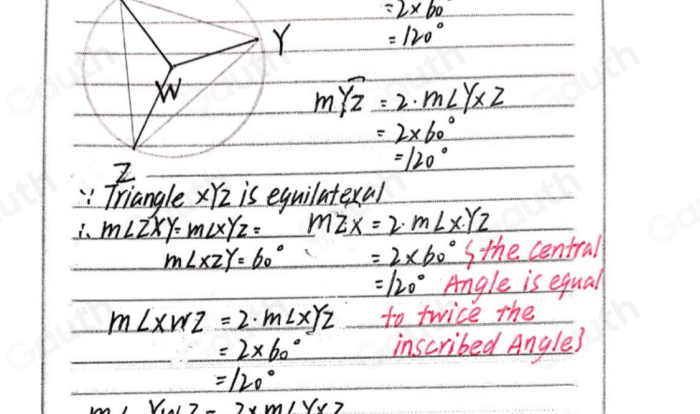 = 2 × 60°
= 120°
Y
W
mYZ = 2·m∠YXZ
= 2×60°
= 120°
Z
∵ Triangle XYZ is equilateral
∴ m∠ZXY = m∠XYZ =
m∠XZY = 60°
mZX = 2·m∠XYZ
= 2×60° {the central
= 120° Angle is equal
to twice the
inscribed Angle}
m∠XWZ = 2·m∠XYZ
= 2×60°
= 120°
m∠YWZ = 2×m∠YXZ
Gauth